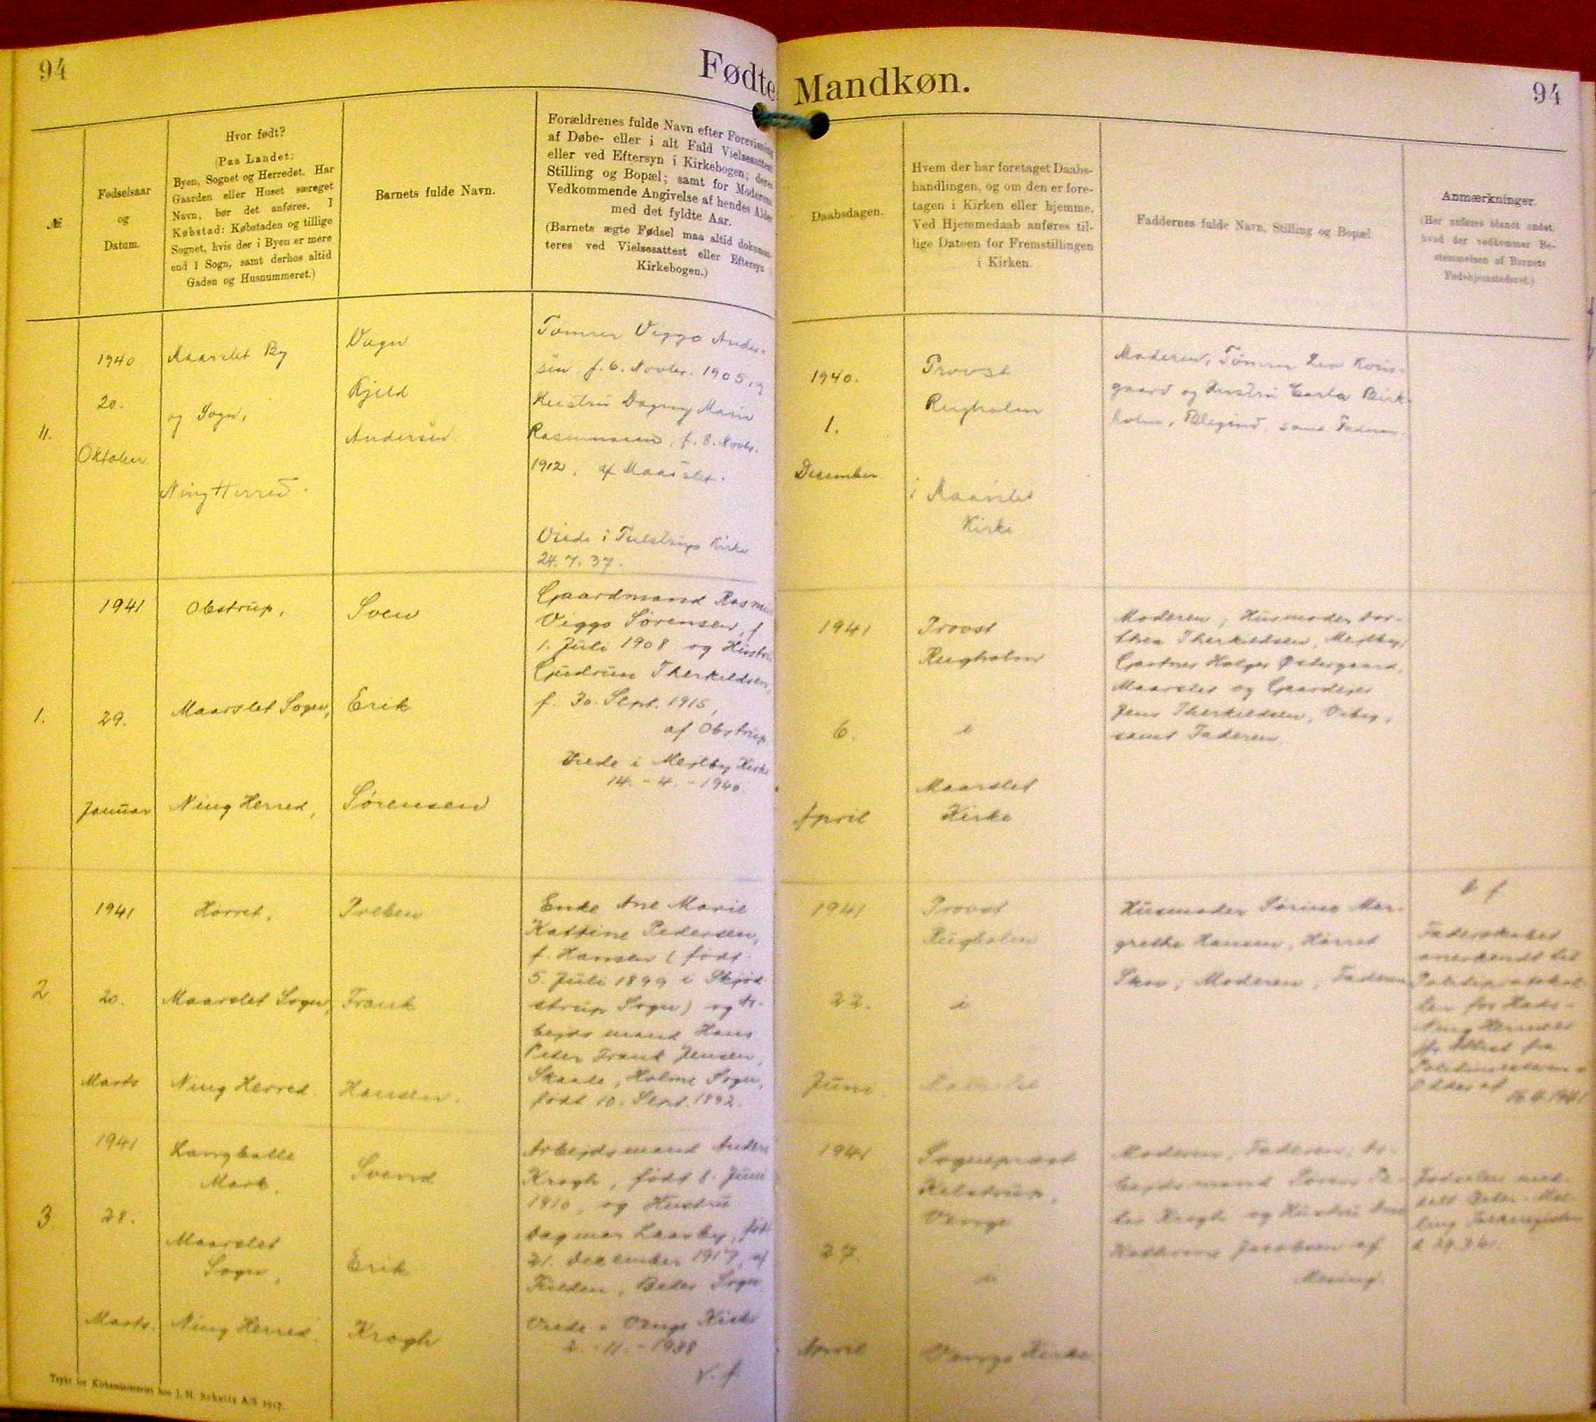 94
Fødte
Mandkøn.
94
№
Fødselsaar
og
Datum.
Hvor født?
(Paa Landet:
Byen, Sognet og Herredet. Har
Gaarden eller Huset særeget
Navn, bør det anføres. I
Købstad: Købstaden og tillige
Sognet, hvis der i Byen er mere
end 1 Sogn, samt derhos altid
Gaden og Husnummeret.)
Barnets fulde Navn.
Forældrenes fulde Navn efter Forevisning
af Døbe- eller i alt Fald Vielsesattest
eller ved Eftersyn i Kirkebogen; deres
Stilling og Bopæl; samt for Moderens
Vedkommende Angivelse af hendes Alder
med det fyldte Aar.
(Barnets ægte Fødsel maa altid dokumen-
teres ved Vielsesattest eller Eftersyn i
Kirkebogen.)
Daabsdagen.
Hvem der har foretaget Daabs-
handlingen, og om den er fore-
tagen i Kirken eller hjemme.
Ved Hjemmedaab anføres til-
lige Datoen for Fremstillingen
i Kirken.
Faddernes fulde Navn, Stilling og Bopæl
Anmærkninger.
(Her anføres blandt andet,
hvad der vedkommer Be-
stemmelsen af Barnets
Fødehjemstederet.)
11.
1940
20.
Oktober
Maarslet By
og Sogn,
Ning Herred.
Vagn
Kjeld
Andersen
Tømrer Viggo Ander-
sen f. 6. Novbr. 1905, og
Hustru Dagny Marie
Rasmussen, f. 8. Novbr.
1912, af Maarslet.
Viede i Tulstrup Kirke
24.7.37.
1940.
1.
December
Provst
Rugholm
i Maarslet
Kirke
Moderen, Tømrer
gaard og Hustru Carla Birk-
holm, Blegind, samt Faderen.
1.
1941
29.
Januar
Obstrup,
Maarslet Sogn,
Ning Herred,
Sven
Erik
Sørensen
Gaardmand Rasmus
Viggo Sørensen, f.
1. Juli 1908 og Hustru
Gudrun Therkildsen,
f. 30. Sept. 1915,
af Obstrup
Viede i Mejlby Kirke
14.-4.-1940.
1941
6.
April
Provst
Rugholm
i
Maarslet
Kirke
Moderen, Husmoder Dor-
thea Therkildsen, Mejlby,
Gartner Holger Østergaard,
Maarslet og Gaardejer
Jens Therkildsen, Viby,
samt Faderen.
2
1941
20.
Marts
Hørret,
Maarslet Sogn,
Ning Herred.
Preben
Frank
Hansen.
Enke Ane Marie
Kattine Pedersen,
f. Hansen (født
5. Juli 1899 i Skjød-
strup Sogn) og Ar-
bejdsmand Hans
Peter Frank Jensen,
Skaade, Holme Sogn,
født 10. Sept. 1892.
1941
22.
Juni
Provst
Rugholm
i
Maarslet
Husmoder Sørine Mar-
grethe Hansen, Hørret
Skov, Moderen, Faderen
Faderskabet
anerkendt til
Politiprotokol-
len for Hads-
Ning Herreder
16.4.1941
3.
1941
28.
Marts.
Langballe
Mark.
Maarslet
Sogn,
Ning Herred.
Svend
Erik
Krogh
Arbejdsmand Anders
Krogh, født 1. Juni
1910, og Hustru
Dagmar Laasby, født
21. December 1917, af
Fulden, Beder Sogn
Viede i Vænge Kirke
2.-11.-1938
v. f.
1941
27.
April
Sognepræst
Kelstrup,
i
Kirke
Moderen, Faderen, Ar-
bejdsmand
Krogh og Hustru
Kathrine Jacobsen af
Mesing.
Fødselen med-
delt Beder-Mal-
ling Folkeregister